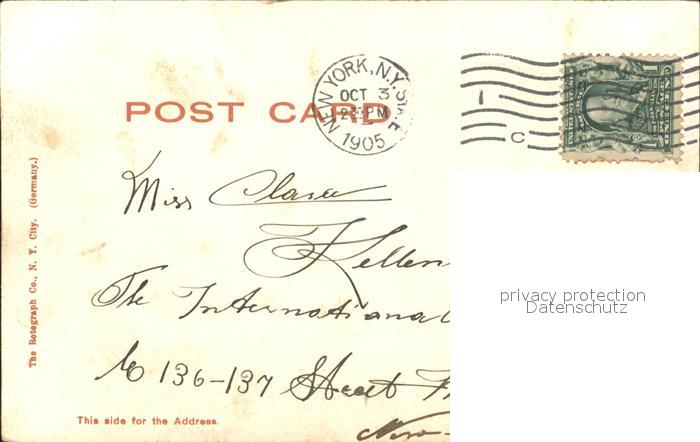 POST CARD
NEW YORK, N.Y. STA. E
OCT 3
2 30 PM
1905
C
Miss Clara
The International
136-137 Street
New-
The Rotograph Co., N. Y. City. (Germany.)
This side for the Address.
privacy protection
Datenschutz